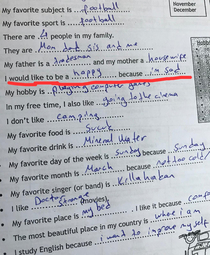 My favorite subject is ... football
My favorite sport is ... football
There are 4 people in my family.
They are Mom dad sis and me
My father is a tradesman and my mother a housewife
I would like to be a happy because i'm sad
My hobby is playing computer games
In my free time, I also like going to the cinema
I don't like camping
My favorite food is
My favorite drink is Mineral Water
My favorite day of the week is Sunday because Sunday
My favorite month is March because not too cold
My favorite singer (or band) is Killa hakan
I like Doctor Strange (movies).
My favorite place is my bed. I like it because
The most beautiful place in my country is where i am
I study English because i want to improve my self
November
December